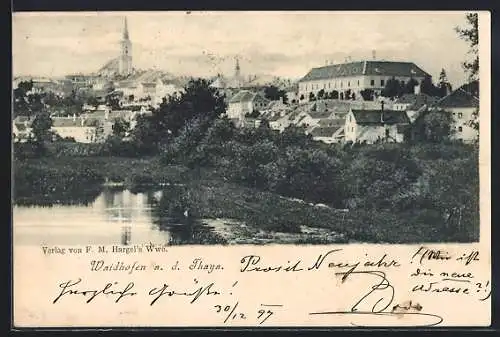 Verlag von F. M. Hargel's Wwe.
Waidhofen a. d. Thaya.
Prosit Neujahr
herzliche Grüsse!
30/12 97
(Wie ist
die neue
Adresse?!)